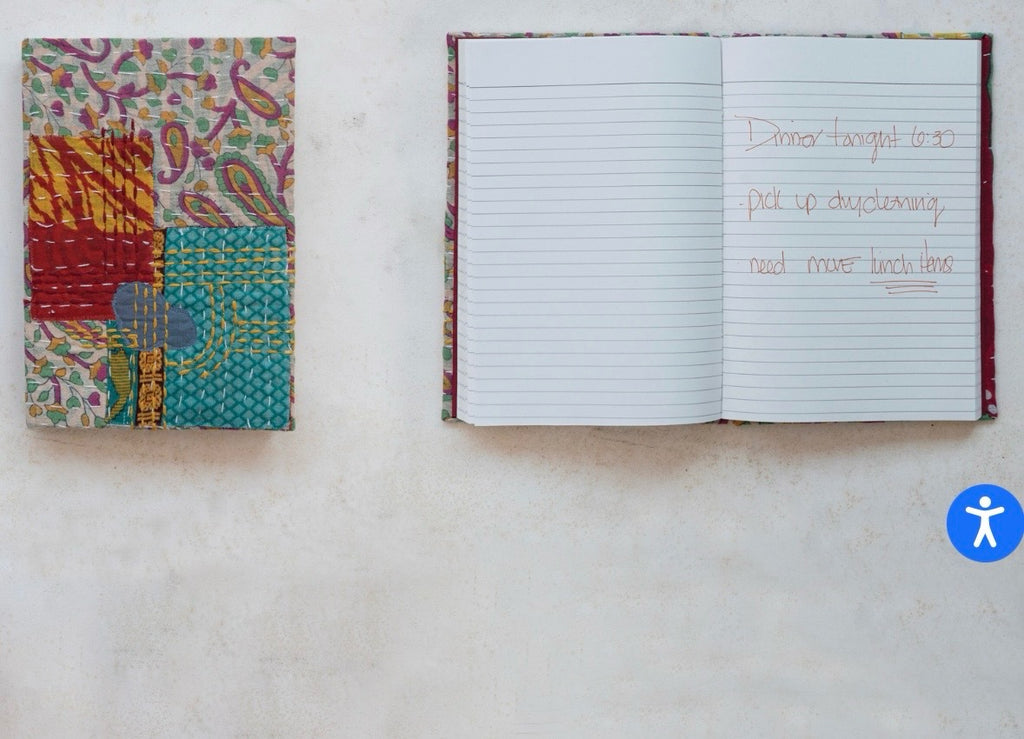 Dinner tonight 6:30
- pick up drycleaning
need more lunch items